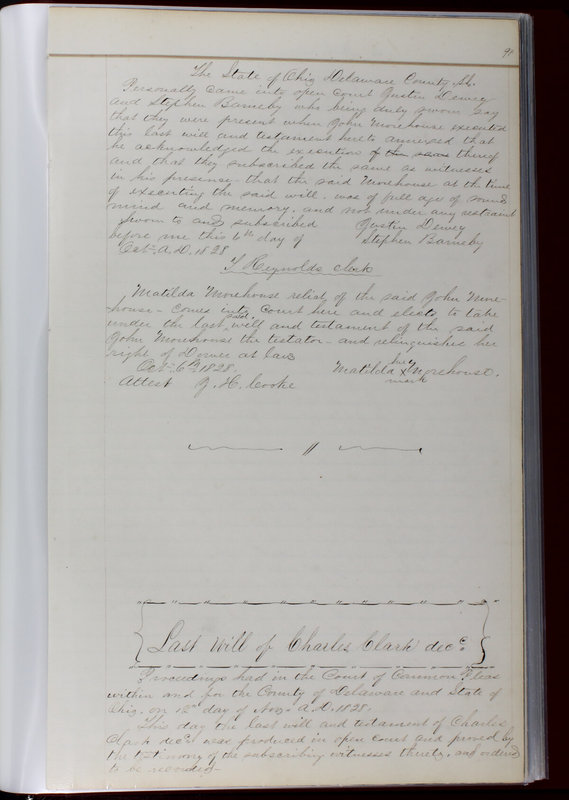 The State of Ohio Delaware County, SS.
Personally came into open court Gustin Dewey
and Stephen Barneby who being duly sworn say
that they were present when John Morehouse executed
this last will and testament hereto annexed that
he acknowledged the execution of the same thereof
and that they subscribed the same as witnesses
in his presence – that the said Morehouse at the time
of executing the said will. was of full age of sound
mind and memory. and not under any restraint
Sworn to and subscribed Gustin Dewey
before me this 6th day of Stephen Barneby
Oct. A.D. 1828
T Reynolds clerk
Matilda Morehouse relict of the said John More-
house – comes into court here and elects to take
under the last said will and testament of the said
John Morehouse the testator – and relinquishes her
right of Dower at law
Oct. 6th 1828. Matilda her x mark Morehouse.
Attest J. H. Cooke
Last Will of Charles Clark decd.
Proceedings had in the Court of Common Pleas
within and for the County of Delaware and State of
Ohio, on day of Nov. A.D. 1828.
This day the last will and testament of Charles
Clark decd. was produced in open court and proved by
the testimony of the subscribing witnesses thereto, and ordered
to be recorded –